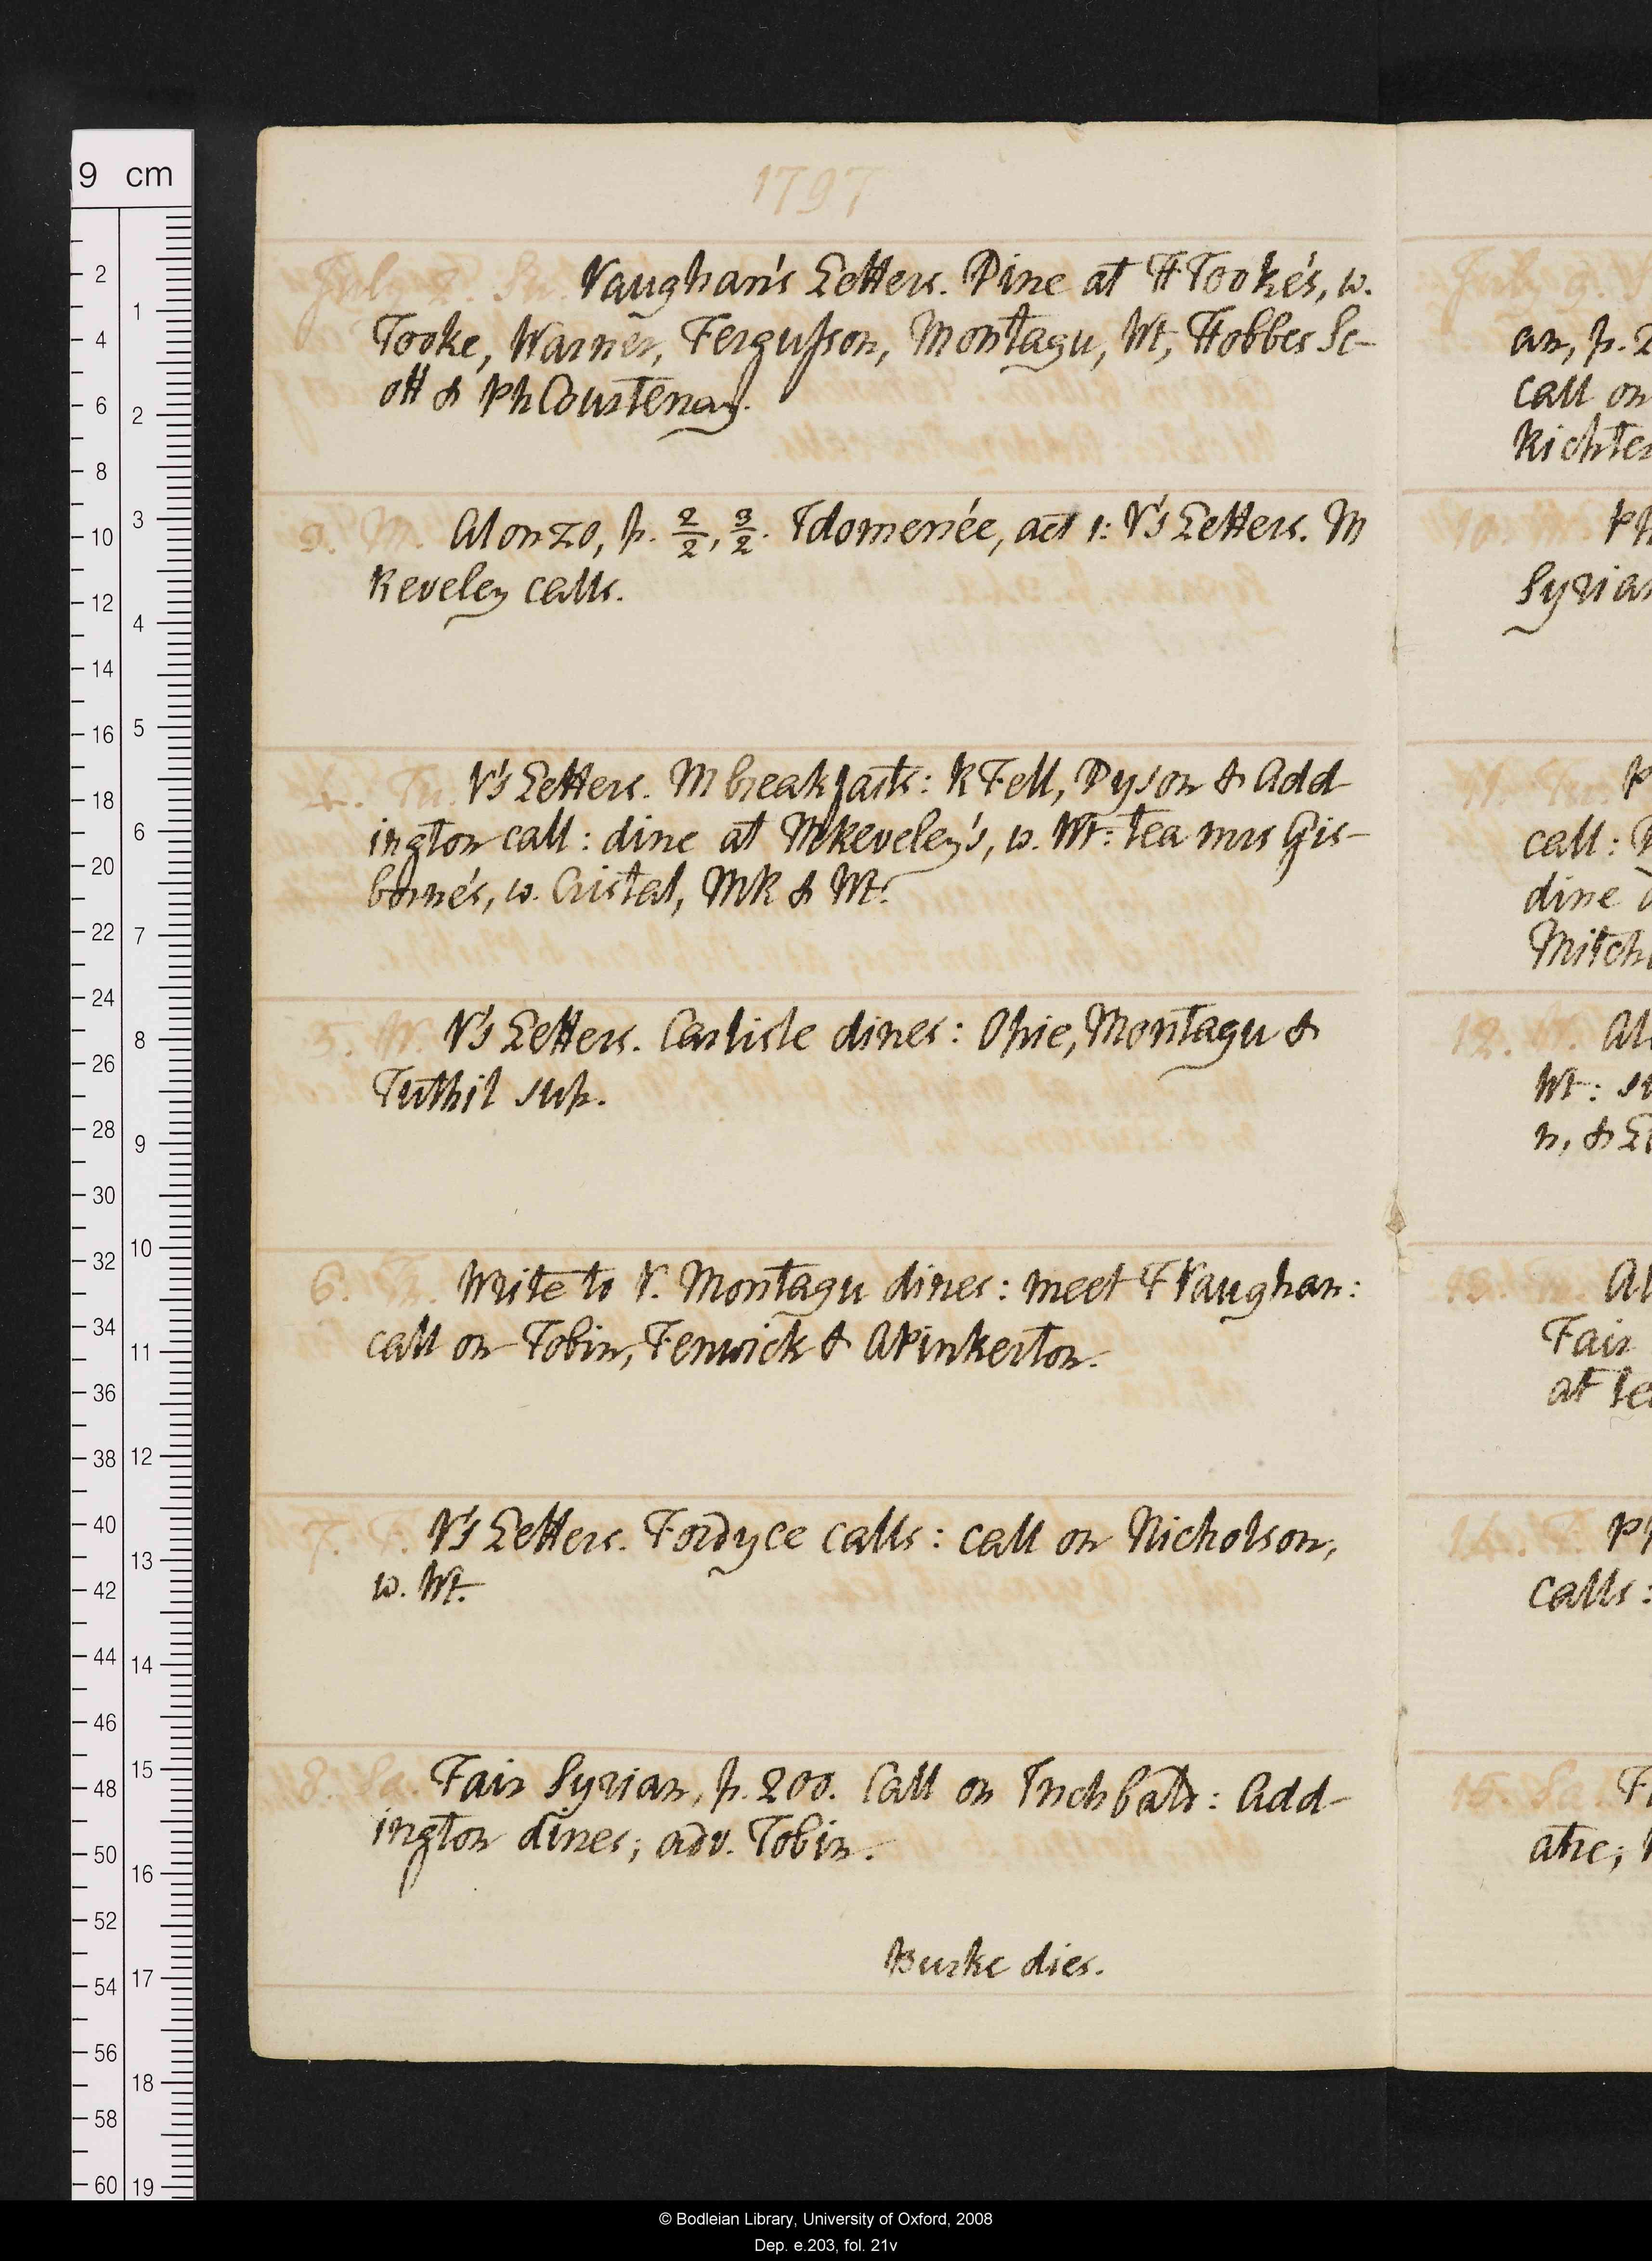 1797
July 2. Su. Vaughan's Letters. Dine at H Tooke's, w.
Tooke, Warner, Fergusson, Montagu, Wt, Hobbes Sc-
ott & Ph Courtenay.
3. M. Alonzo, p. 2/2, 3/2. Idomenée, act 1: V's Letters. M
Reveley calls.
4. Tu. V's Letters. M breakfasts: R Fell, Dyson & Add-
ington call: dine at M Reveley's, w. Wt: tea mrs Gis-
borne's, w. Cristal, MR & Wt.
5. W. V's Letters. Carlisle dines: Opie, Montagu &
Tuthil sup.
6. Th. Write to V. Montagu dines: meet F Vaughan:
call on Tobin, Fenwick & A Pinkerton.
7. F. V's Letters. Fordyce calls: call on Nicholson,
w. Wt.
8. Sa. Fair Syrian, p. 200. Call on Inchbald: Add-
ington dines; adv. Tobin.
Burke dies.
July 9. S
an, p. 2
call on
Richter
10. M. Ph
Syrian
11. Tu.
call:
dine
Mitch
12. W. Al
Wt: su
n, &
13. Th. Al
Fair
at te
14. F. Ph
calls:
15. Sa. F
atre;
9 cm
2
4
6
8
10
12
14
16
18
20
22
24
26
28
30
32
34
36
38
40
42
44
46
48
50
52
54
56
58
60
1
2
3
4
5
6
7
8
9
10
11
12
13
14
15
16
17
18
19
© Bodleian Library, University of Oxford, 2008
Dep. e.203, fol. 21v